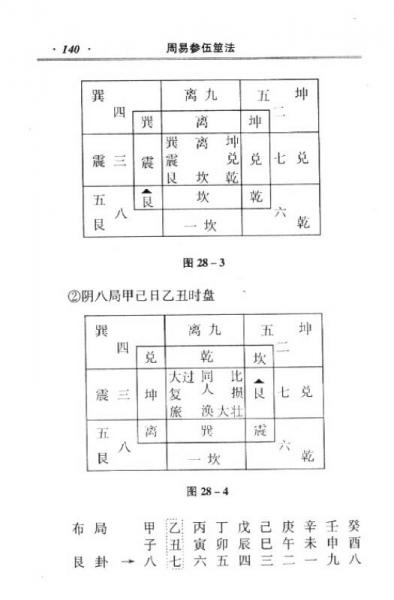 · 140 ·
周易参伍筮法
巽 离 九 五 坤
四 二
巽 离 坤
巽 离 坤
震 三 震 震 兑 兑 七 兑
艮 坎 乾
五 艮 坎 乾
八 六
艮 一 坎 乾
图 28-3
②阴八局甲己日乙丑时盘
巽 离 九 五 坤
四 二
兑 乾 坎
大过 同 比
震 三 坤 复 人 损 艮 七 兑
旅 涣 大壮
五 离 巽 震
八 六
艮 一 坎 乾
图 28-4
布 局 甲 乙 丙 丁 戊 己 庚 辛 壬 癸
子 丑 寅 卯 辰 巳 午 未 申 酉
艮 卦 → 八 七 六 五 四 三 二 一 九 八